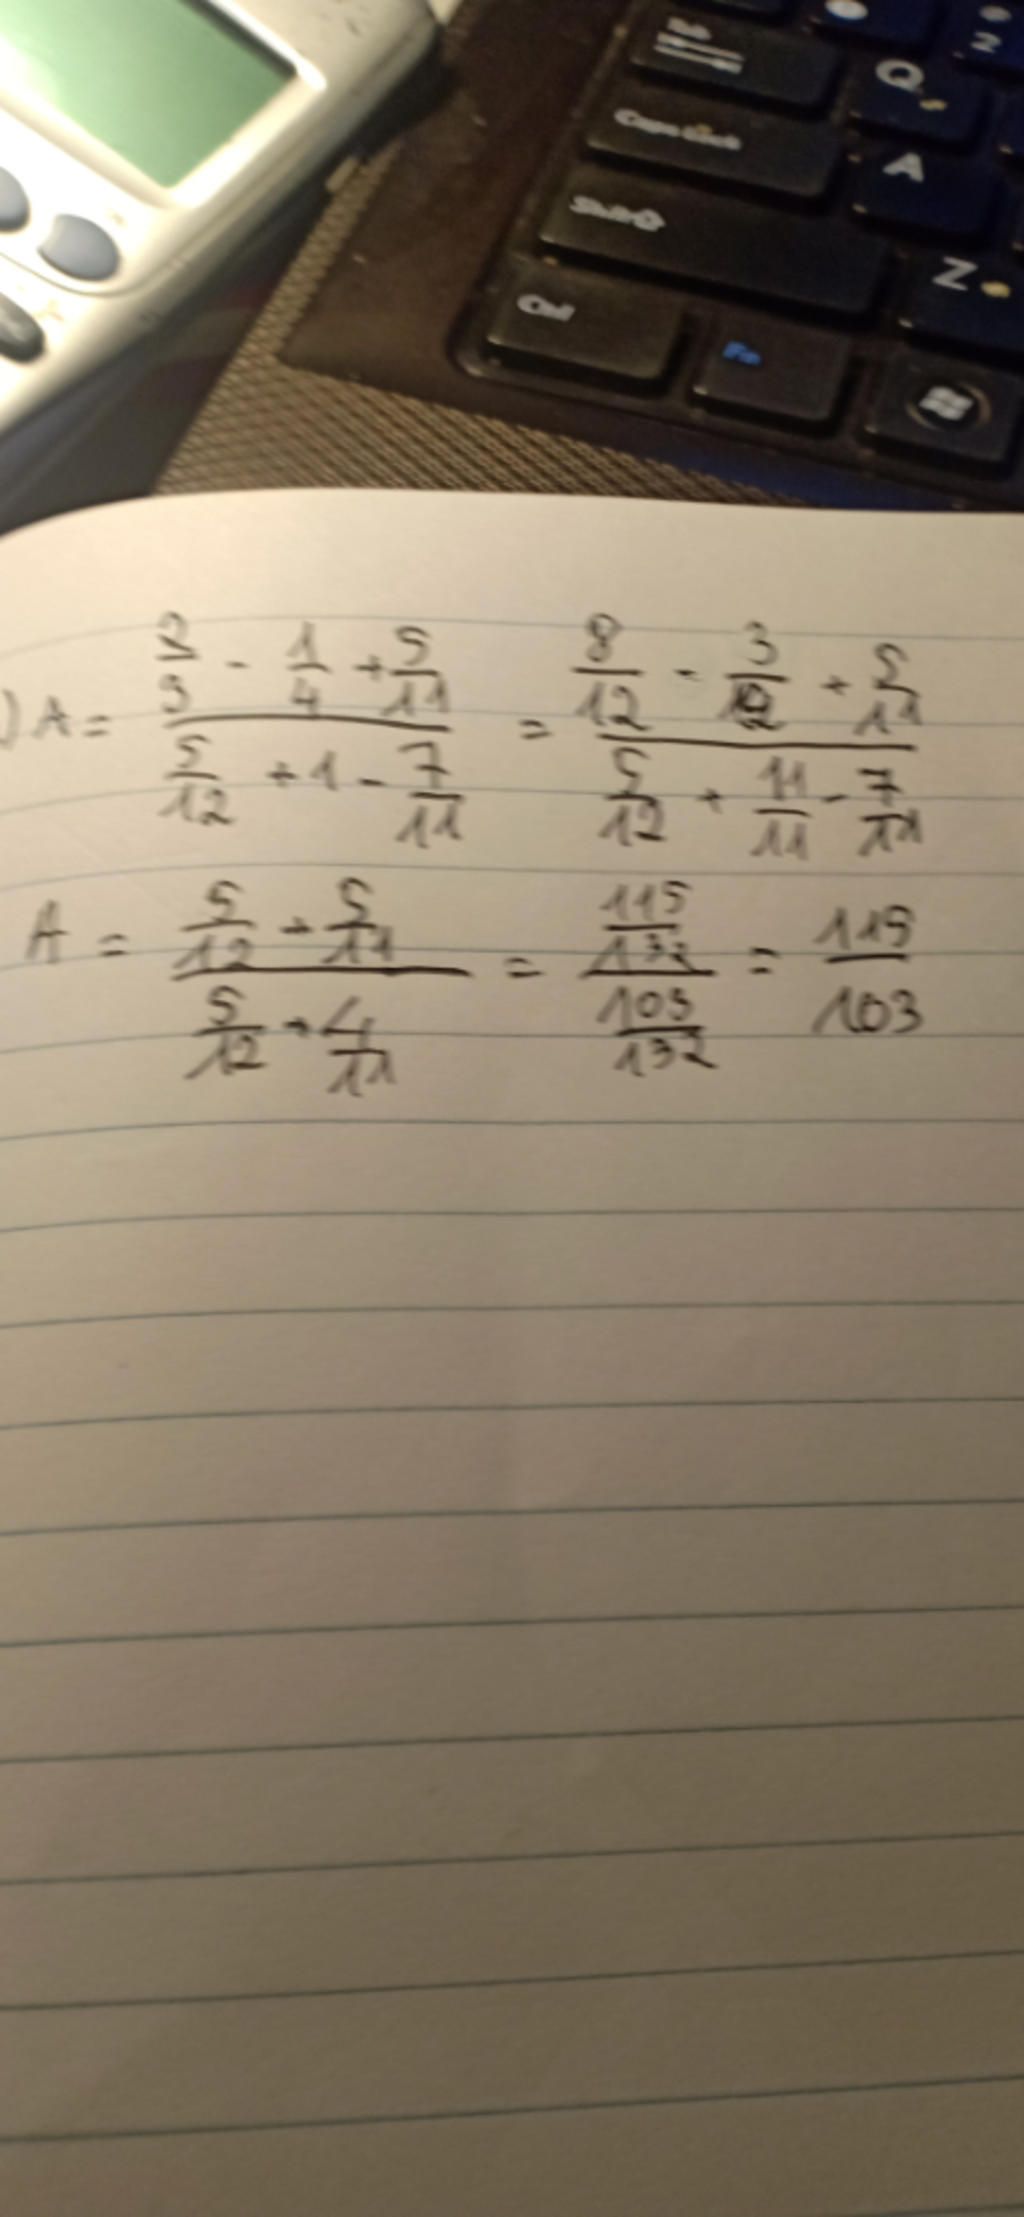 Tab
Q
2
Caps Lock
A
Shift
Z
Ctrl
Fn
) A = (2/3 - 1/4 + 5/11)/(5/12 + 1 - 7/11) = (8/12 - 3/12 + 5/11)/(5/12 + 11/11 - 7/11)
A = (5/12 + 5/11)/(5/12 + 4/11) = (115/132)/(103/132) = 115/103